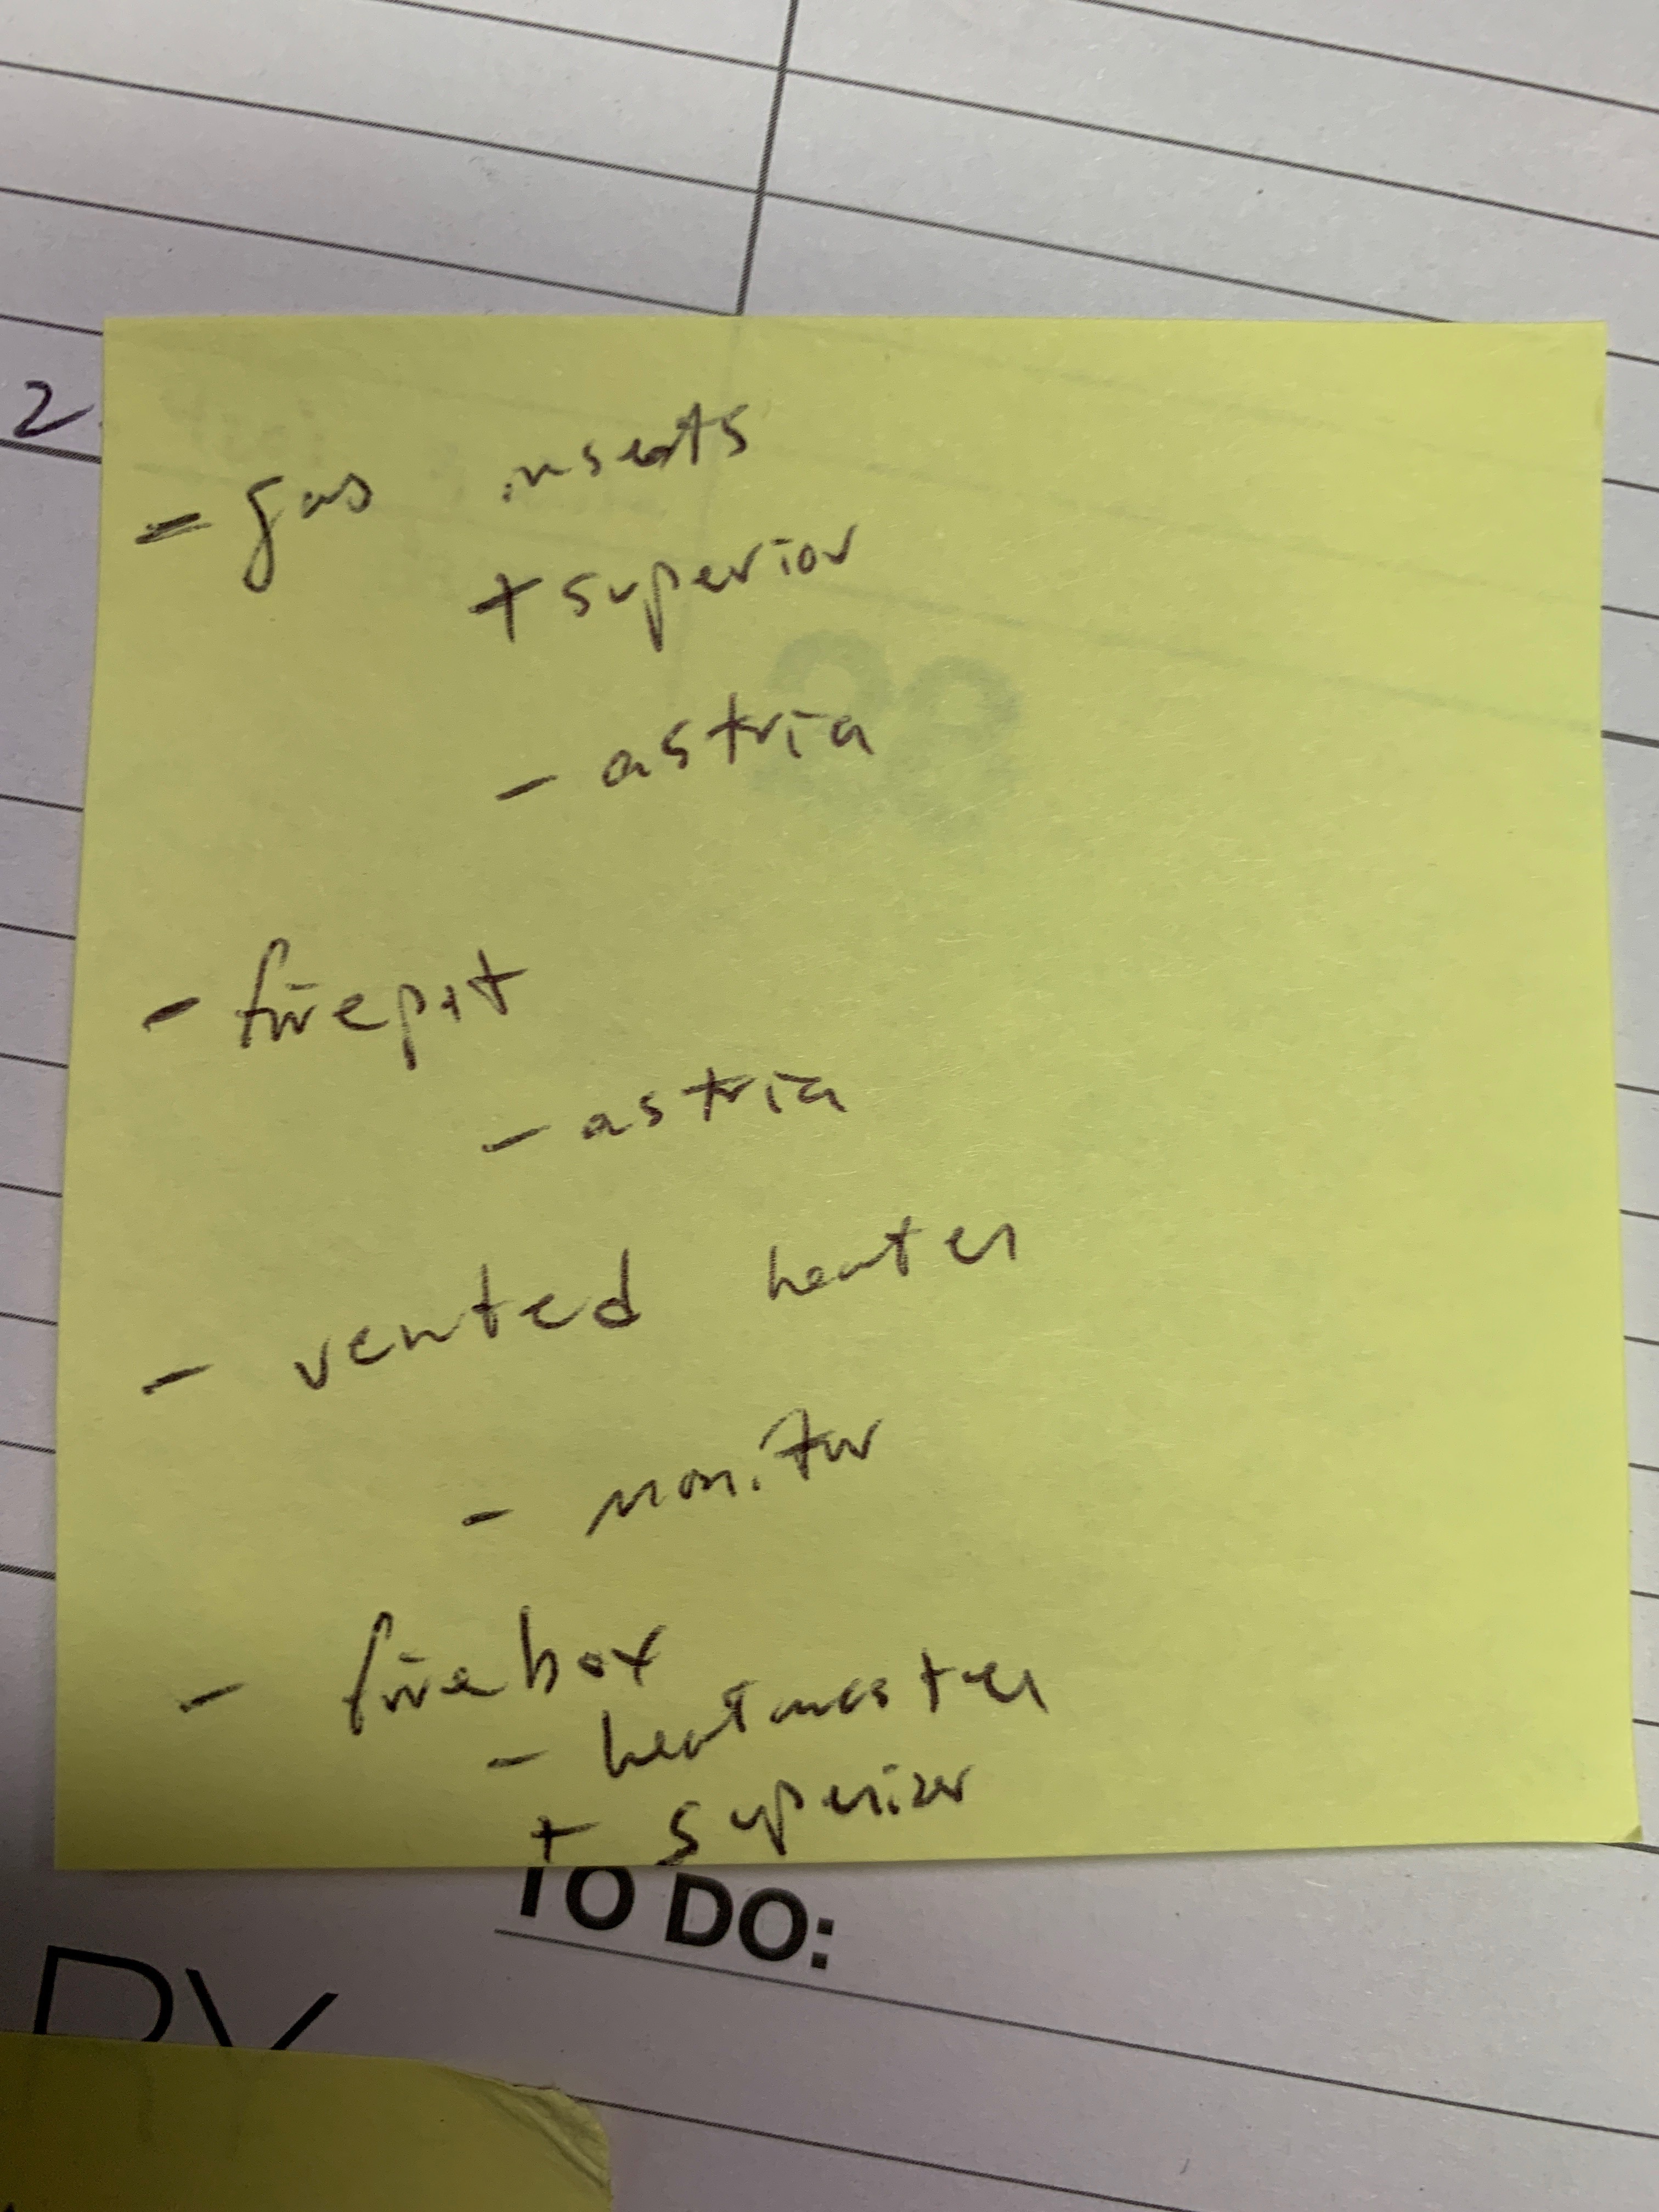 2.
- gas inserts
+ superior
- astria
- firepit
- astria
- vented heater
- monitor
- firebox
- heatmaster
+ superior
TO DO: